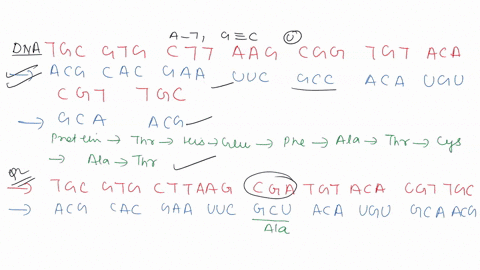 A-T, G≡C U
DNA TGC GTG CTT AAG CGG TGT ACA
→ ACG CAC GAA UUC GCC ACA UGU
CGT TGC
→ GCA ACG
Protein → Thr → His → Glu → Phe → Ala → Thr → Cys
→ Ala → Thr
⇒ TGC GTG CTTAAG CGA TGT ACA CGT TGC
→ ACG CAC GAA UUC GCU ACA UGU GCA ACG
Ala